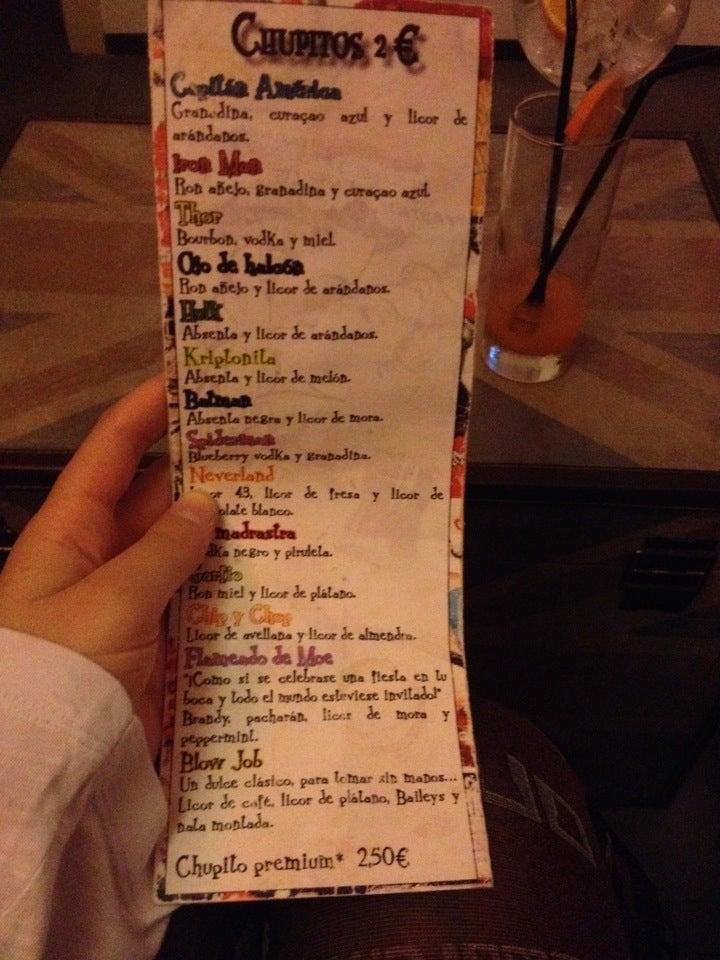 CHUPITOS 2 €
Capitán América
Granadina, curaçao azul y licor de
arándanos.
Iron Man
Ron añejo, granadina y curaçao azul.
Thor
Bourbon, vodka y miel.
Ojo de halcón
Ron añejo y licor de arándanos.
Hulk
Absenta y licor de arándanos.
Kriptonita
Absenta y licor de melón.
Batman
Absenta negra y licor de mora.
Spiderman
Blueberry vodka y granadina.
Neverland
43, licor de fresa y licor de
blanco.
madrastra
negro y piruleta.
Ron miel y licor de plátano.
Chip y Chop
Licor de avellana y licor de almendra.
Flameado de Moe
"¡Como si se celebrase una fiesta en tu
boca y todo el mundo estuviese invitado!"
Brandy, pacharán, licor de mora y
peppermint.
Blow Job
Un dulce clásico, para tomar sin manos...
Licor de café, licor de plátano, Baileys y
nata montada.
Chupito premium* 2,50€